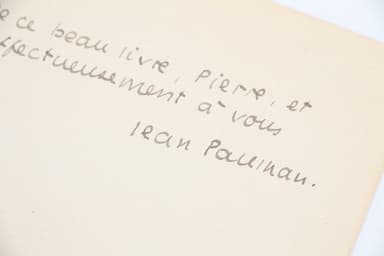 ce beau livre, Pierre, et
affectueusement à vous
Jean Paulhan.